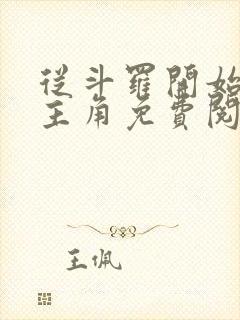 從斗羅開始
主角免費閱
王佩